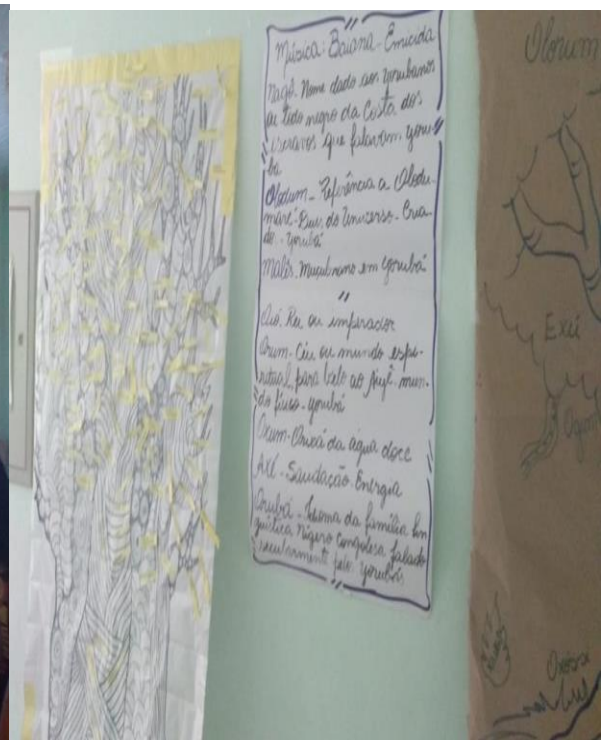 Música: Baiana - Emicida
Nagô - Nome dado aos yorubanos
ou todo negro da Costa dos
escravos que falavam yoru-
bá
Olodum - Referência a Olodu-
maré - Deus do Universo - Cria-
dor - Yorubá
Malês - Muçulmano em Yorubá
"
Rei ou imperador
Orum - Céu ou mundo espi-
ritual, para lelo ao Aiyê - mun-
do físico - yorubá
Oxum - Orixá da água doce
Axé - Saudação. Energia
Iorubá - Idioma da família lin
guística nigero congolesa falado
secularmente pelos yorubás
Olorum
Exú
Ogum